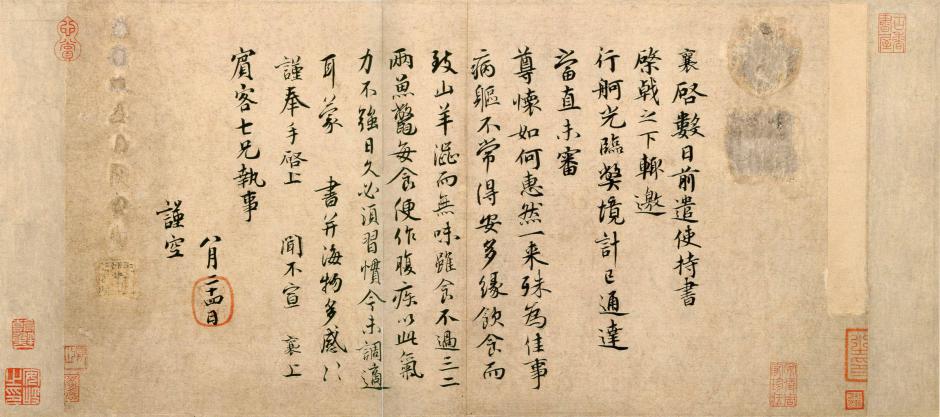 襄启數日前遣使持書
棨戟之下輙邀
行舸光臨弊境計已通達
當直未審
尊懷如何惠然一來殊為佳事
病軀不常得安多緣飲食而
致山羊澀而無味雖食不過三二
兩魚鼈每食便作腹疾以此氣
力不強日久必須習慣今未調適
耳蒙 書并海物多感〻
謹奉手啓上 聞不宣 襄上
賓客七兄執事
八月二十四日
謹空